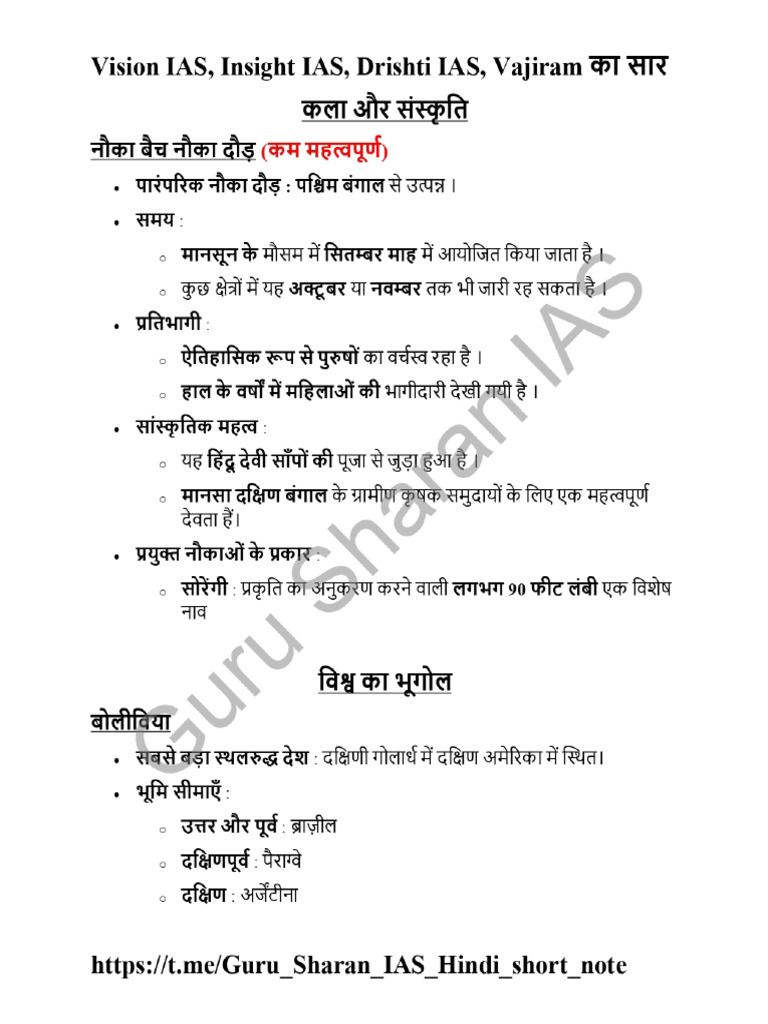 Vision IAS, Insight IAS, Drishti IAS, Vajiram का सार
कला और संस्कृति
नौका बैच नौका दौड़ (कम महत्वपूर्ण)
• पारंपरिक नौका दौड़ : पश्चिम बंगाल से उत्पन्न ।
• समय :
o मानसून के मौसम में सितम्बर माह में आयोजित किया जाता है ।
o कुछ क्षेत्रों में यह अक्टूबर या नवम्बर तक भी जारी रह सकता है ।
• प्रतिभागी :
o ऐतिहासिक रूप से पुरुषों का वर्चस्व रहा है ।
o हाल के वर्षों में महिलाओं की भागीदारी देखी गयी है ।
• सांस्कृतिक महत्व :
o यह हिंदू देवी साँपों की पूजा से जुड़ा हुआ है ।
o मानसा दक्षिण बंगाल के ग्रामीण कृषक समुदायों के लिए एक महत्वपूर्ण
देवता हैं।
• प्रयुक्त नौकाओं के प्रकार :
o सोरेंगी : प्रकृति का अनुकरण करने वाली लगभग 90 फीट लंबी एक विशेष
नाव
विश्व का भूगोल
बोलीविया
• सबसे बड़ा स्थलरुद्ध देश : दक्षिणी गोलार्ध में दक्षिण अमेरिका में स्थित।
• भूमि सीमाएँ :
o उत्तर और पूर्व : ब्राज़ील
o दक्षिणपूर्व : पैराग्वे
o दक्षिण : अर्जेंटीना
https://t.me/Guru_Sharan_IAS_Hindi_short_note
Guru Sharan IAS